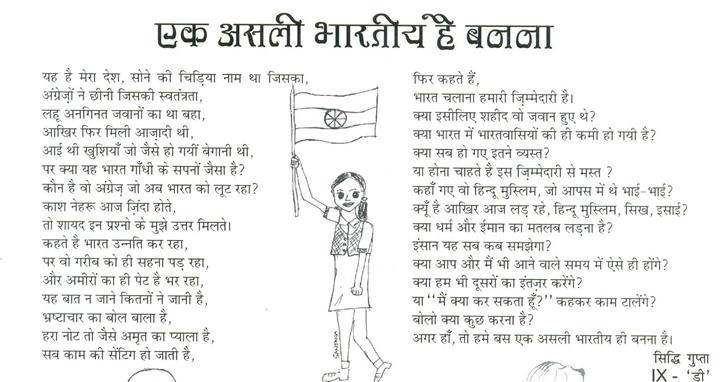 एक असली भारतीय है बनना
यह है मेरा देश, सोने की चिड़िया नाम था जिसका,
अंग्रेज़ों ने छीनी जिसकी स्वतंत्रता,
लहू अनगिनत जवानों का था बहा,
आखिर फिर मिली आज़ादी थी,
आई थी खुशियाँ जो जैसे हो गयीं बेगानी थी,
पर क्या यह भारत गाँधी के सपनों जैसा है?
कौन है वो अंग्रेज़ जो अब भारत को लूट रहा?
काश नेहरू आज ज़िंदा होते,
तो शायद इन प्रश्नो के मुझे उत्तर मिलते।
कहते है भारत उन्नति कर रहा,
पर वो गरीब को ही सहना पड़ रहा,
और अमीरों का ही पेट है भर रहा,
यह बात न जाने कितनों ने जानी है,
भ्रष्टाचार का बोल बाला है,
हरा नोट तो जैसे अमृत का प्याला है,
सब काम की सेटिंग हो जाती है,
फिर कहते हैं,
भारत चलाना हमारी ज़िम्मेदारी है।
क्या इसीलिए शहीद वो जवान हुए थे?
क्या भारत में भारतवासियों की ही कमी हो गयी है?
क्या सब हो गए इतने व्यस्त?
या होना चाहते है इस ज़िम्मेदारी से मस्त ?
कहाँ गए वो हिन्दू मुस्लिम, जो आपस में थे भाई-भाई?
क्यूँ है आखिर आज लड़ रहे, हिन्दू मुस्लिम, सिख, इसाई?
क्या धर्म और ईमान का मतलब लड़ना है?
इंसान यह सब कब समझेगा?
क्या आप और मैं भी आने वाले समय में ऐसे ही होंगे?
क्या हम भी दूसरों का इंतज़र करेंगे?
या "मैं क्या कर सकता हूँ?" कहकर काम टालेंगे?
बोलो क्या कुछ करना है?
अगर हाँ, तो हमे बस एक असली भारतीय ही बनना है।
सिद्धि गुप्ता
IX - 'डी'